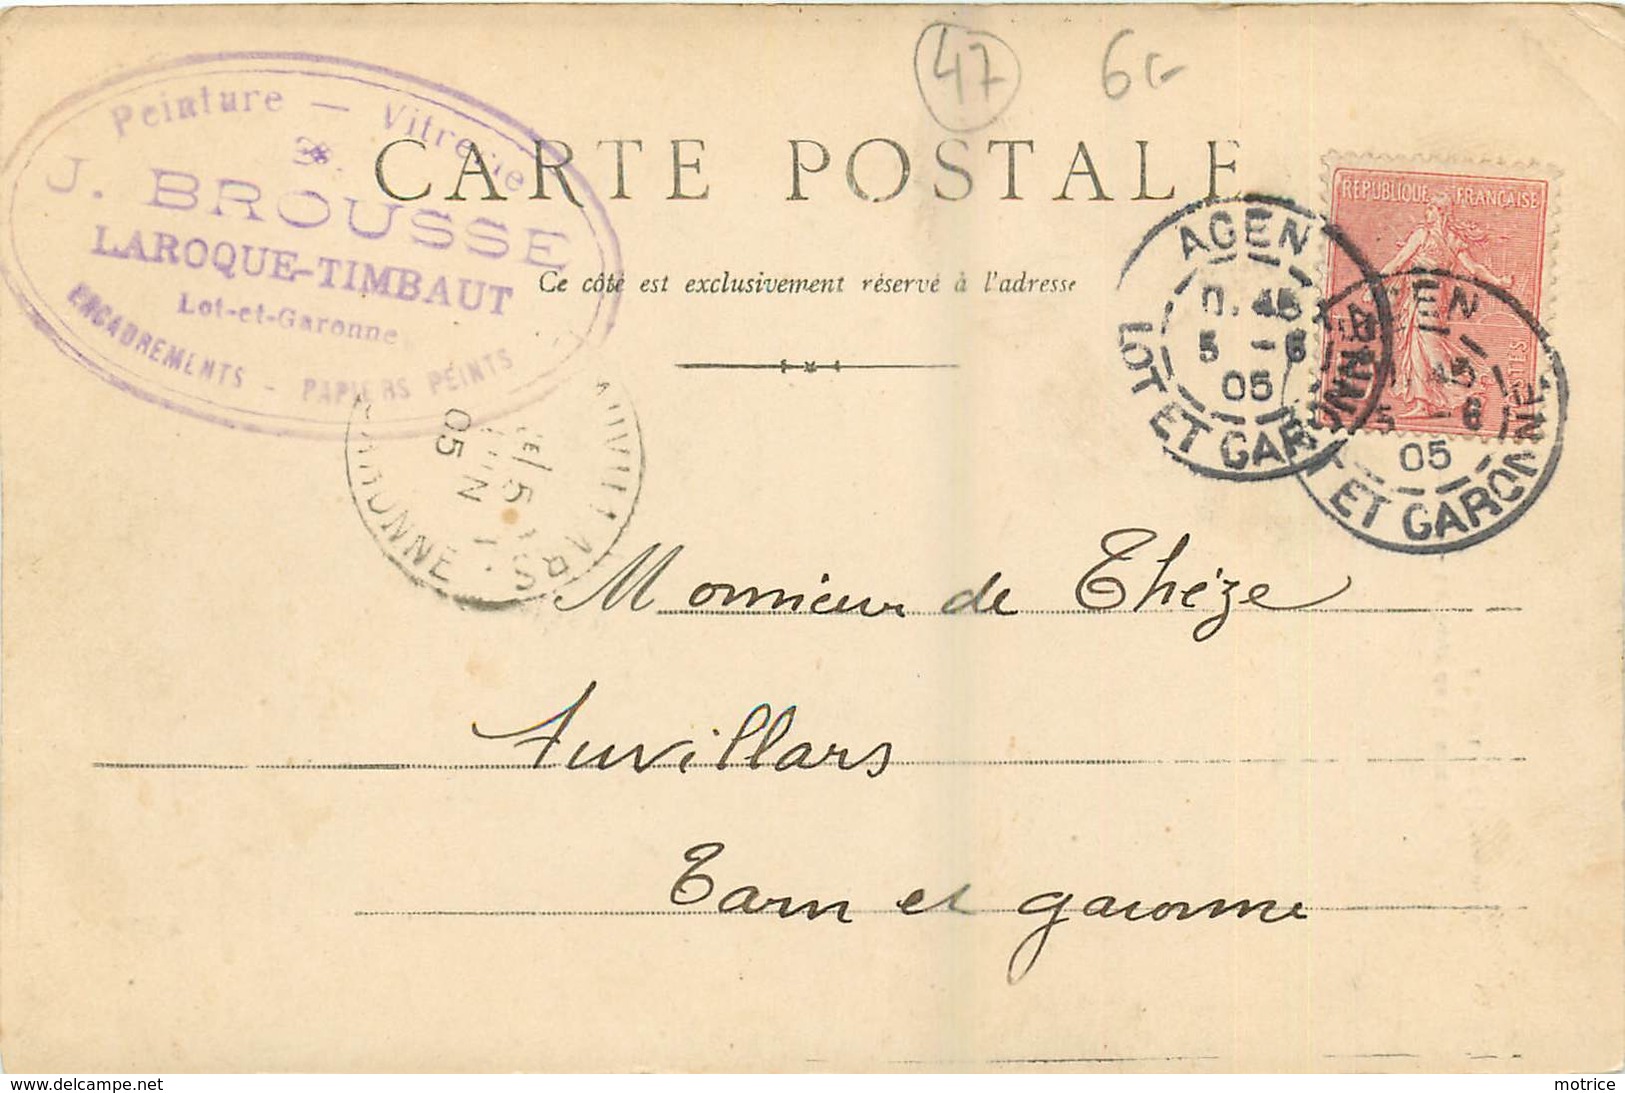 47 6
Peinture — Vitrerie
J. BROUSSE
LAROQUE-TIMBAUT
Lot-et-Garonne
ENCADREMENTS - PAPIERS PEINTS
CARTE POSTALE
Ce côté est exclusivement réservé à l'adresse
REPUBLIQUE FRANÇAISE
AGEN
5 - 6
05
LOT ET GARONNE
5 - 6
05
ET GARONNE
GARONNE
5
05
Monsieur de Thèze
Auvillars
Tarn et garonne
delcampe.net
motrice